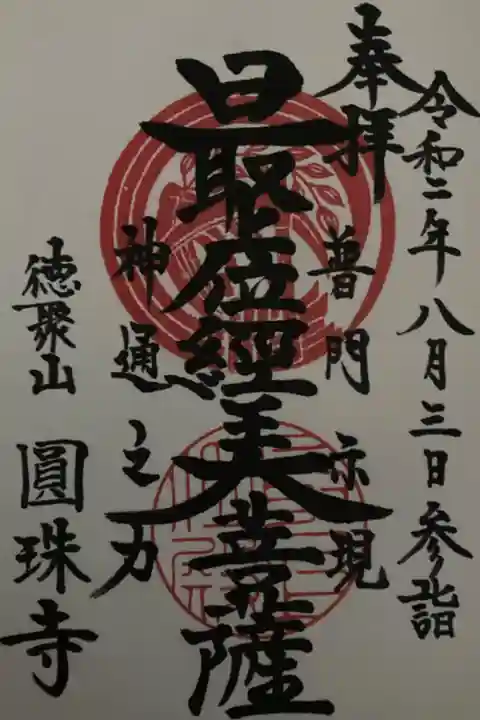 令和二年八月三日参詣
奉拝
普門示現
最上位經王大菩薩
神通之力
徳聚山
圓珠寺